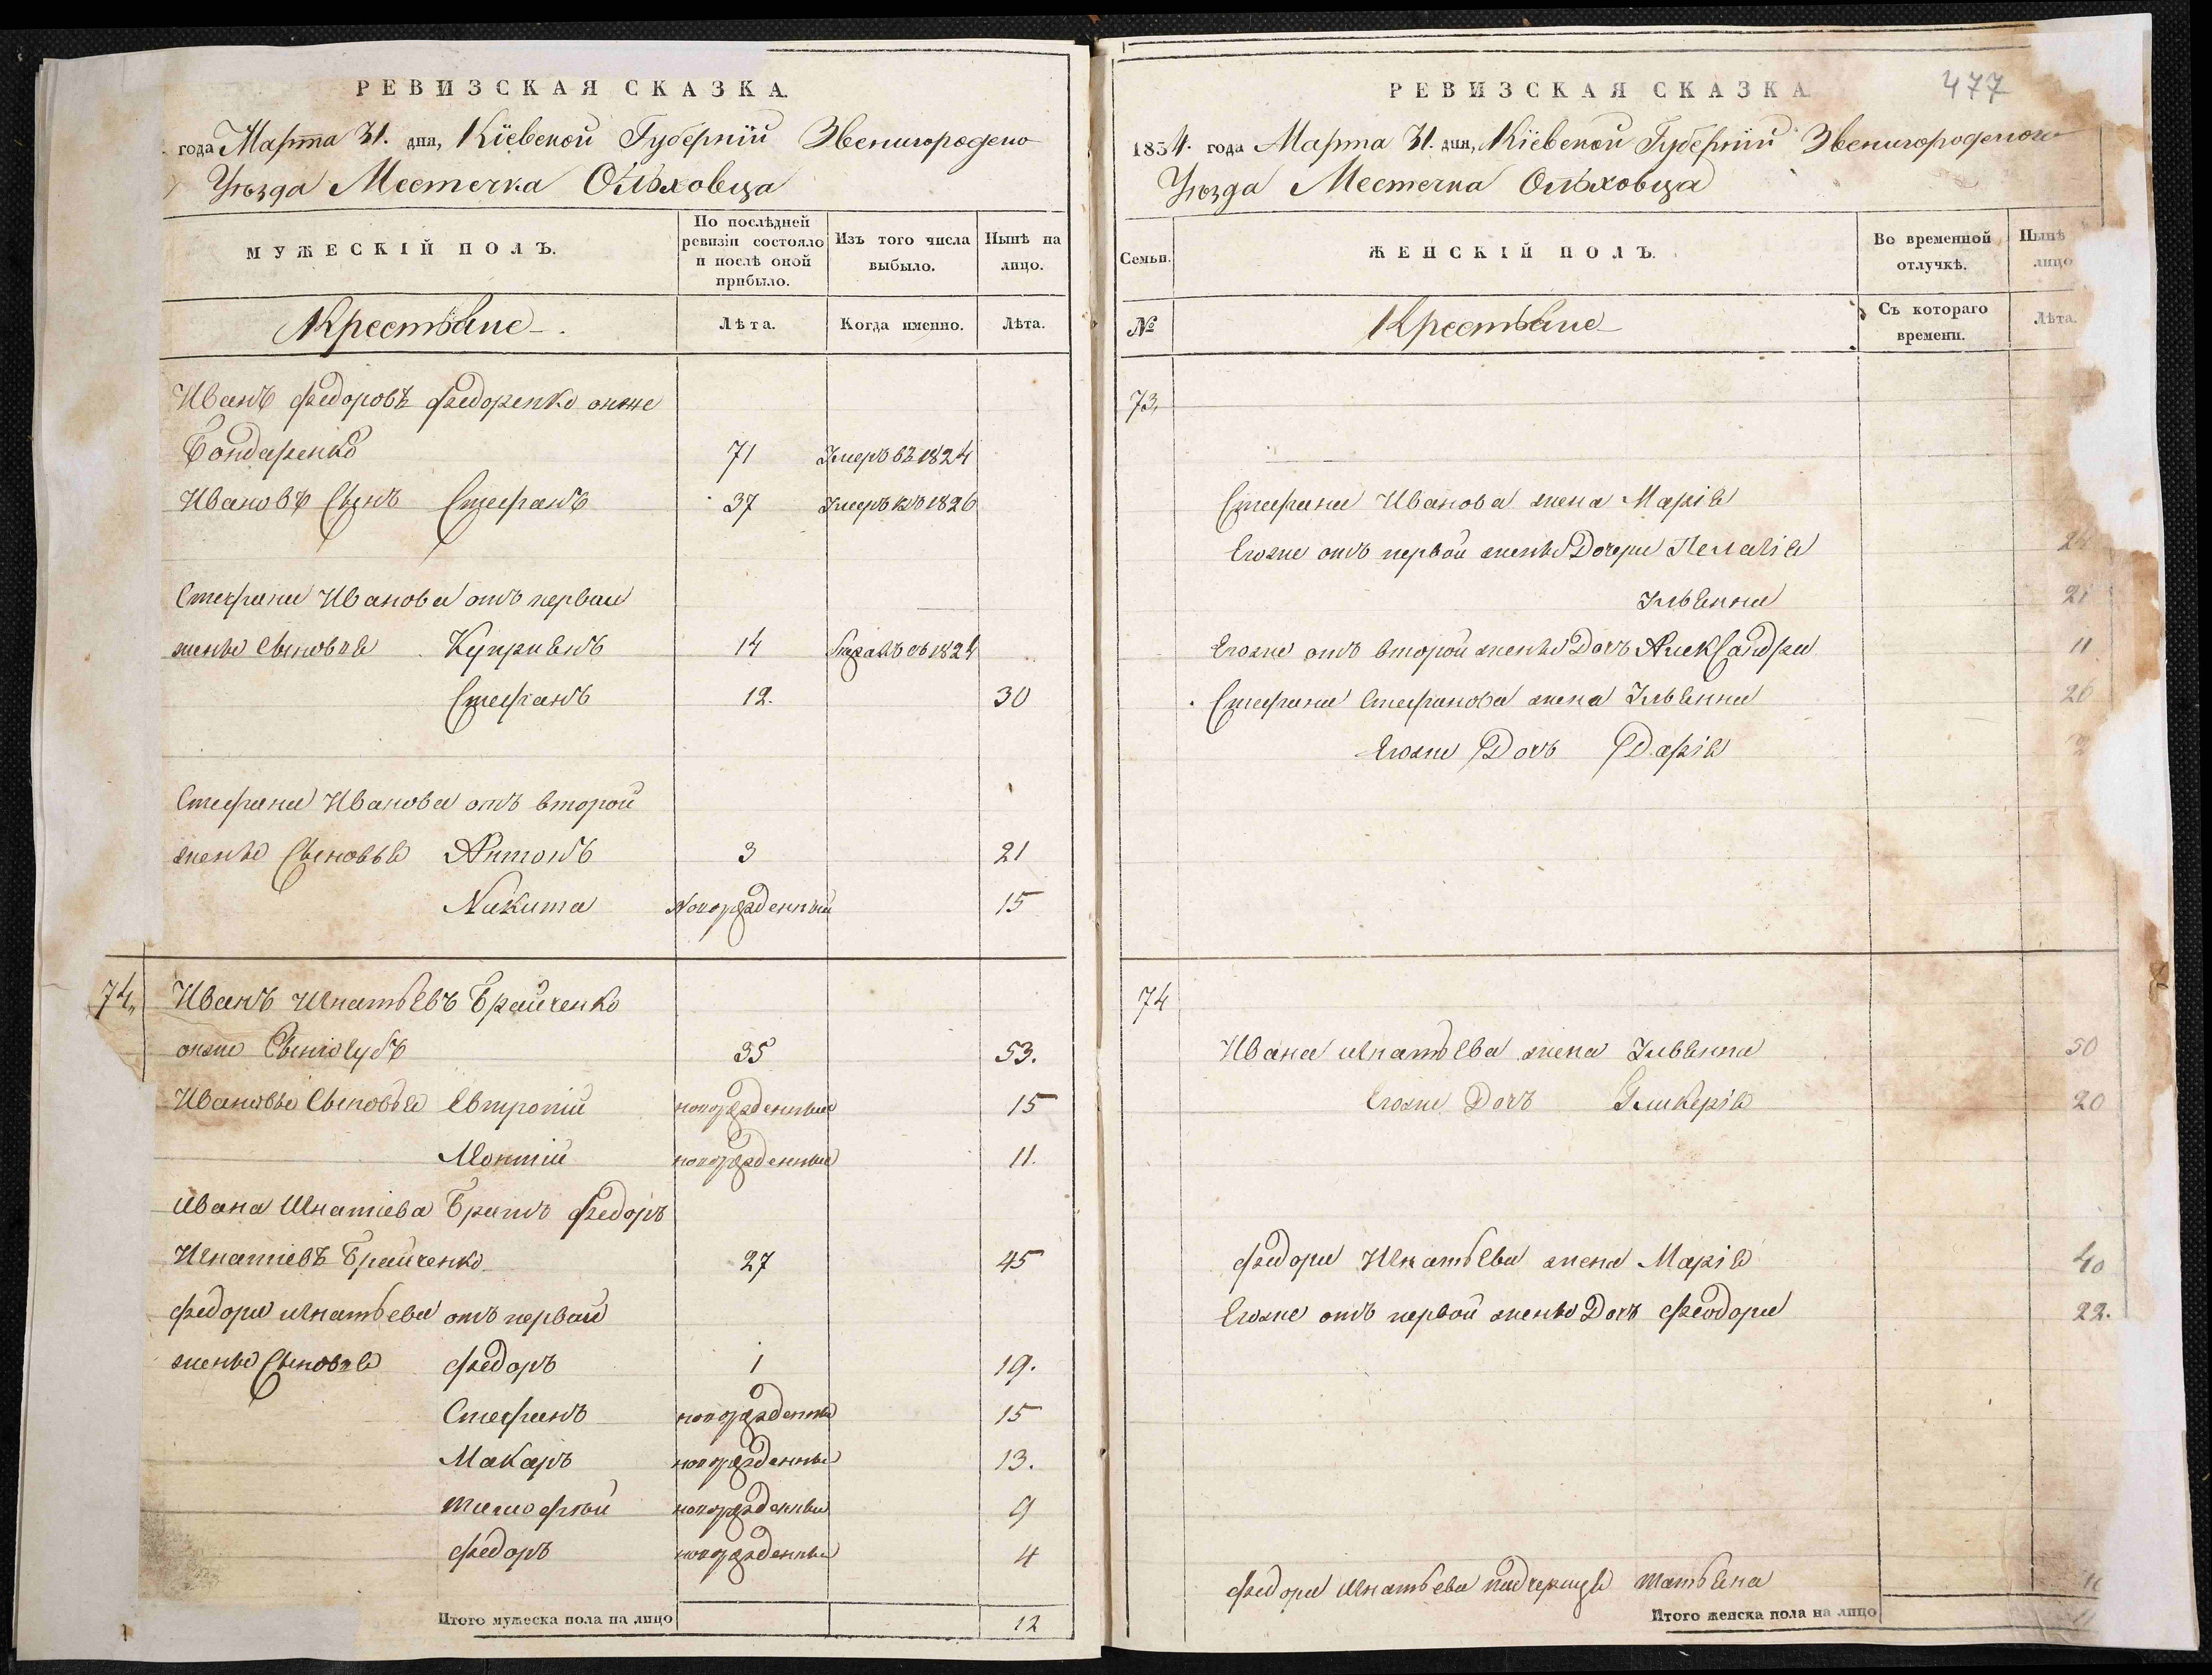 РЕВИЗСКАЯ СКАЗКА.
года Марта 31. дня, Кіевской Губерніи Звенигородско
Уѣзда Местечка Ольховца
МУЖЕСКІЙ ПОЛЪ.
По послѣдней ревизіи состояло и послѣ оной прибыло.
Изъ того числа выбыло.
Нынѣ на лицо.
Крестьяне
Лѣта.
Когда именно.
Лѣта.
Иванъ Федоровъ Федоренко онже
Бондаренко 71 Умеръ въ 1824
Ивановъ Сынъ Стефанъ 37 Умеръ въ 1826
Стефана Иванова отъ первой
жены Сыновья Купріянъ 14 1824
Стефанъ 12. 30
Стефана Иванова отъ второй
жены Сыновья Антонъ 3 21
Никита Новорожденный 15
74. Иванъ Игнатьевъ Брайченко
онже 35 53.
Ивановы Сыновья Евтропій новорожденные 15
Мокій новорожденные 11.
Ивана Игнатіева Братъ Федоръ
Игнатіевъ Брайченко 27 45
Федора Игнатьева отъ первой
жены Сыновья Федоръ 1 19.
Стефанъ новорожденны 15
Макаръ новорожденны 13.
Тимофѣй новорожденны 9
Федоръ новорожденны 4
Итого мужеска пола на лицо 12
477
РЕВИЗСКАЯ СКАЗКА
1834. года Марта 31. дня, Кіевской Губерніи Звенигородского
Уѣзда Местечка Ольховца
Семьи.
ЖЕНСКІЙ ПОЛЪ.
Во временной отлучкѣ.
Нынѣ лицо
№
Крестьяне
Съ котораго времени.
Лѣта.
73.
Стефана Иванова жена Марія
Егоже отъ первой жены Дочери Пелагія
Ульянна 21
Егоже отъ второй жены Дочь Александра 11
Стефана Стефанова жена Ульянна 26
Егоже Дочь Дарія
74
Ивана Игнатьева жена Ульянна 50
Егоже Дочь Гликерія 20
Федора Игнатьева жена Марія 40
Егоже отъ первой жены Дочь Феодора 22.
Федора Игнатьева падчерица Татьяна 11
Итого женска пола на лицо 11